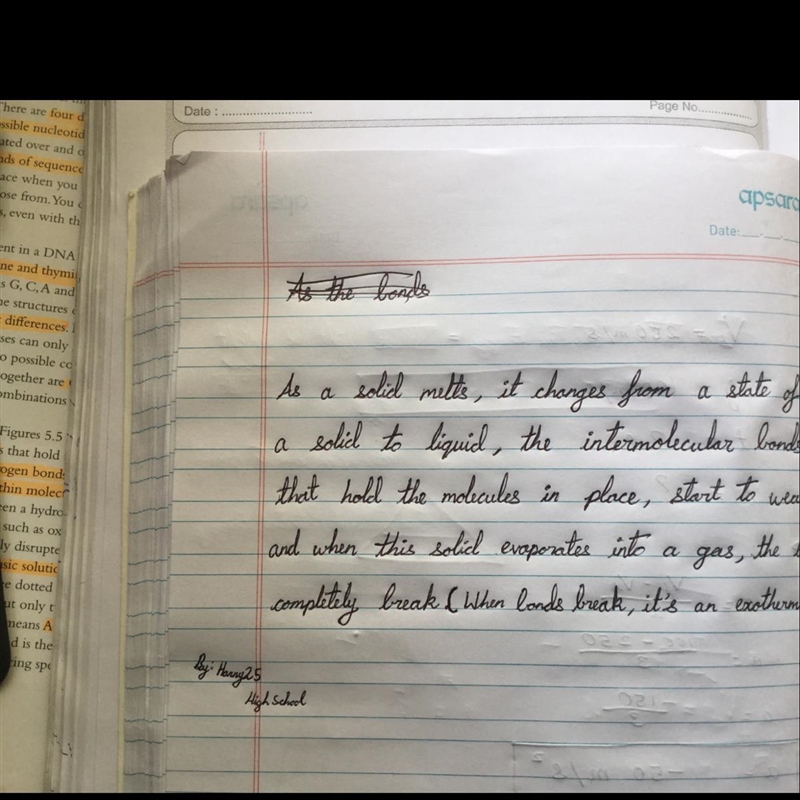 There are four d
ssible nucleotid
ated over and o
ds of sequence
ace when you
ose from. You
s, even with th
ent in a DNA
ne and thymi
s G, C, A and
ne structures
differences.
ses can only
o possible co
ogether are
ombinations
Figures 5.5
s that hold
ogen bond
thin molec
en a hydro
such as ox
ly disrupte
sic solutio
e dotted
ut only t
means A
d is the
ring spe
Date : ..........................
Page No. ...............
apsara
Date:
As the bonds
As a solid melts, it changes from a state of
a solid to liquid, the intermolecular bonds
that hold the molecules in place, start to wea
and when this solid evaporates into a gas, the
completely break (When bonds break, it's an exotherm
By: Harry25
High School